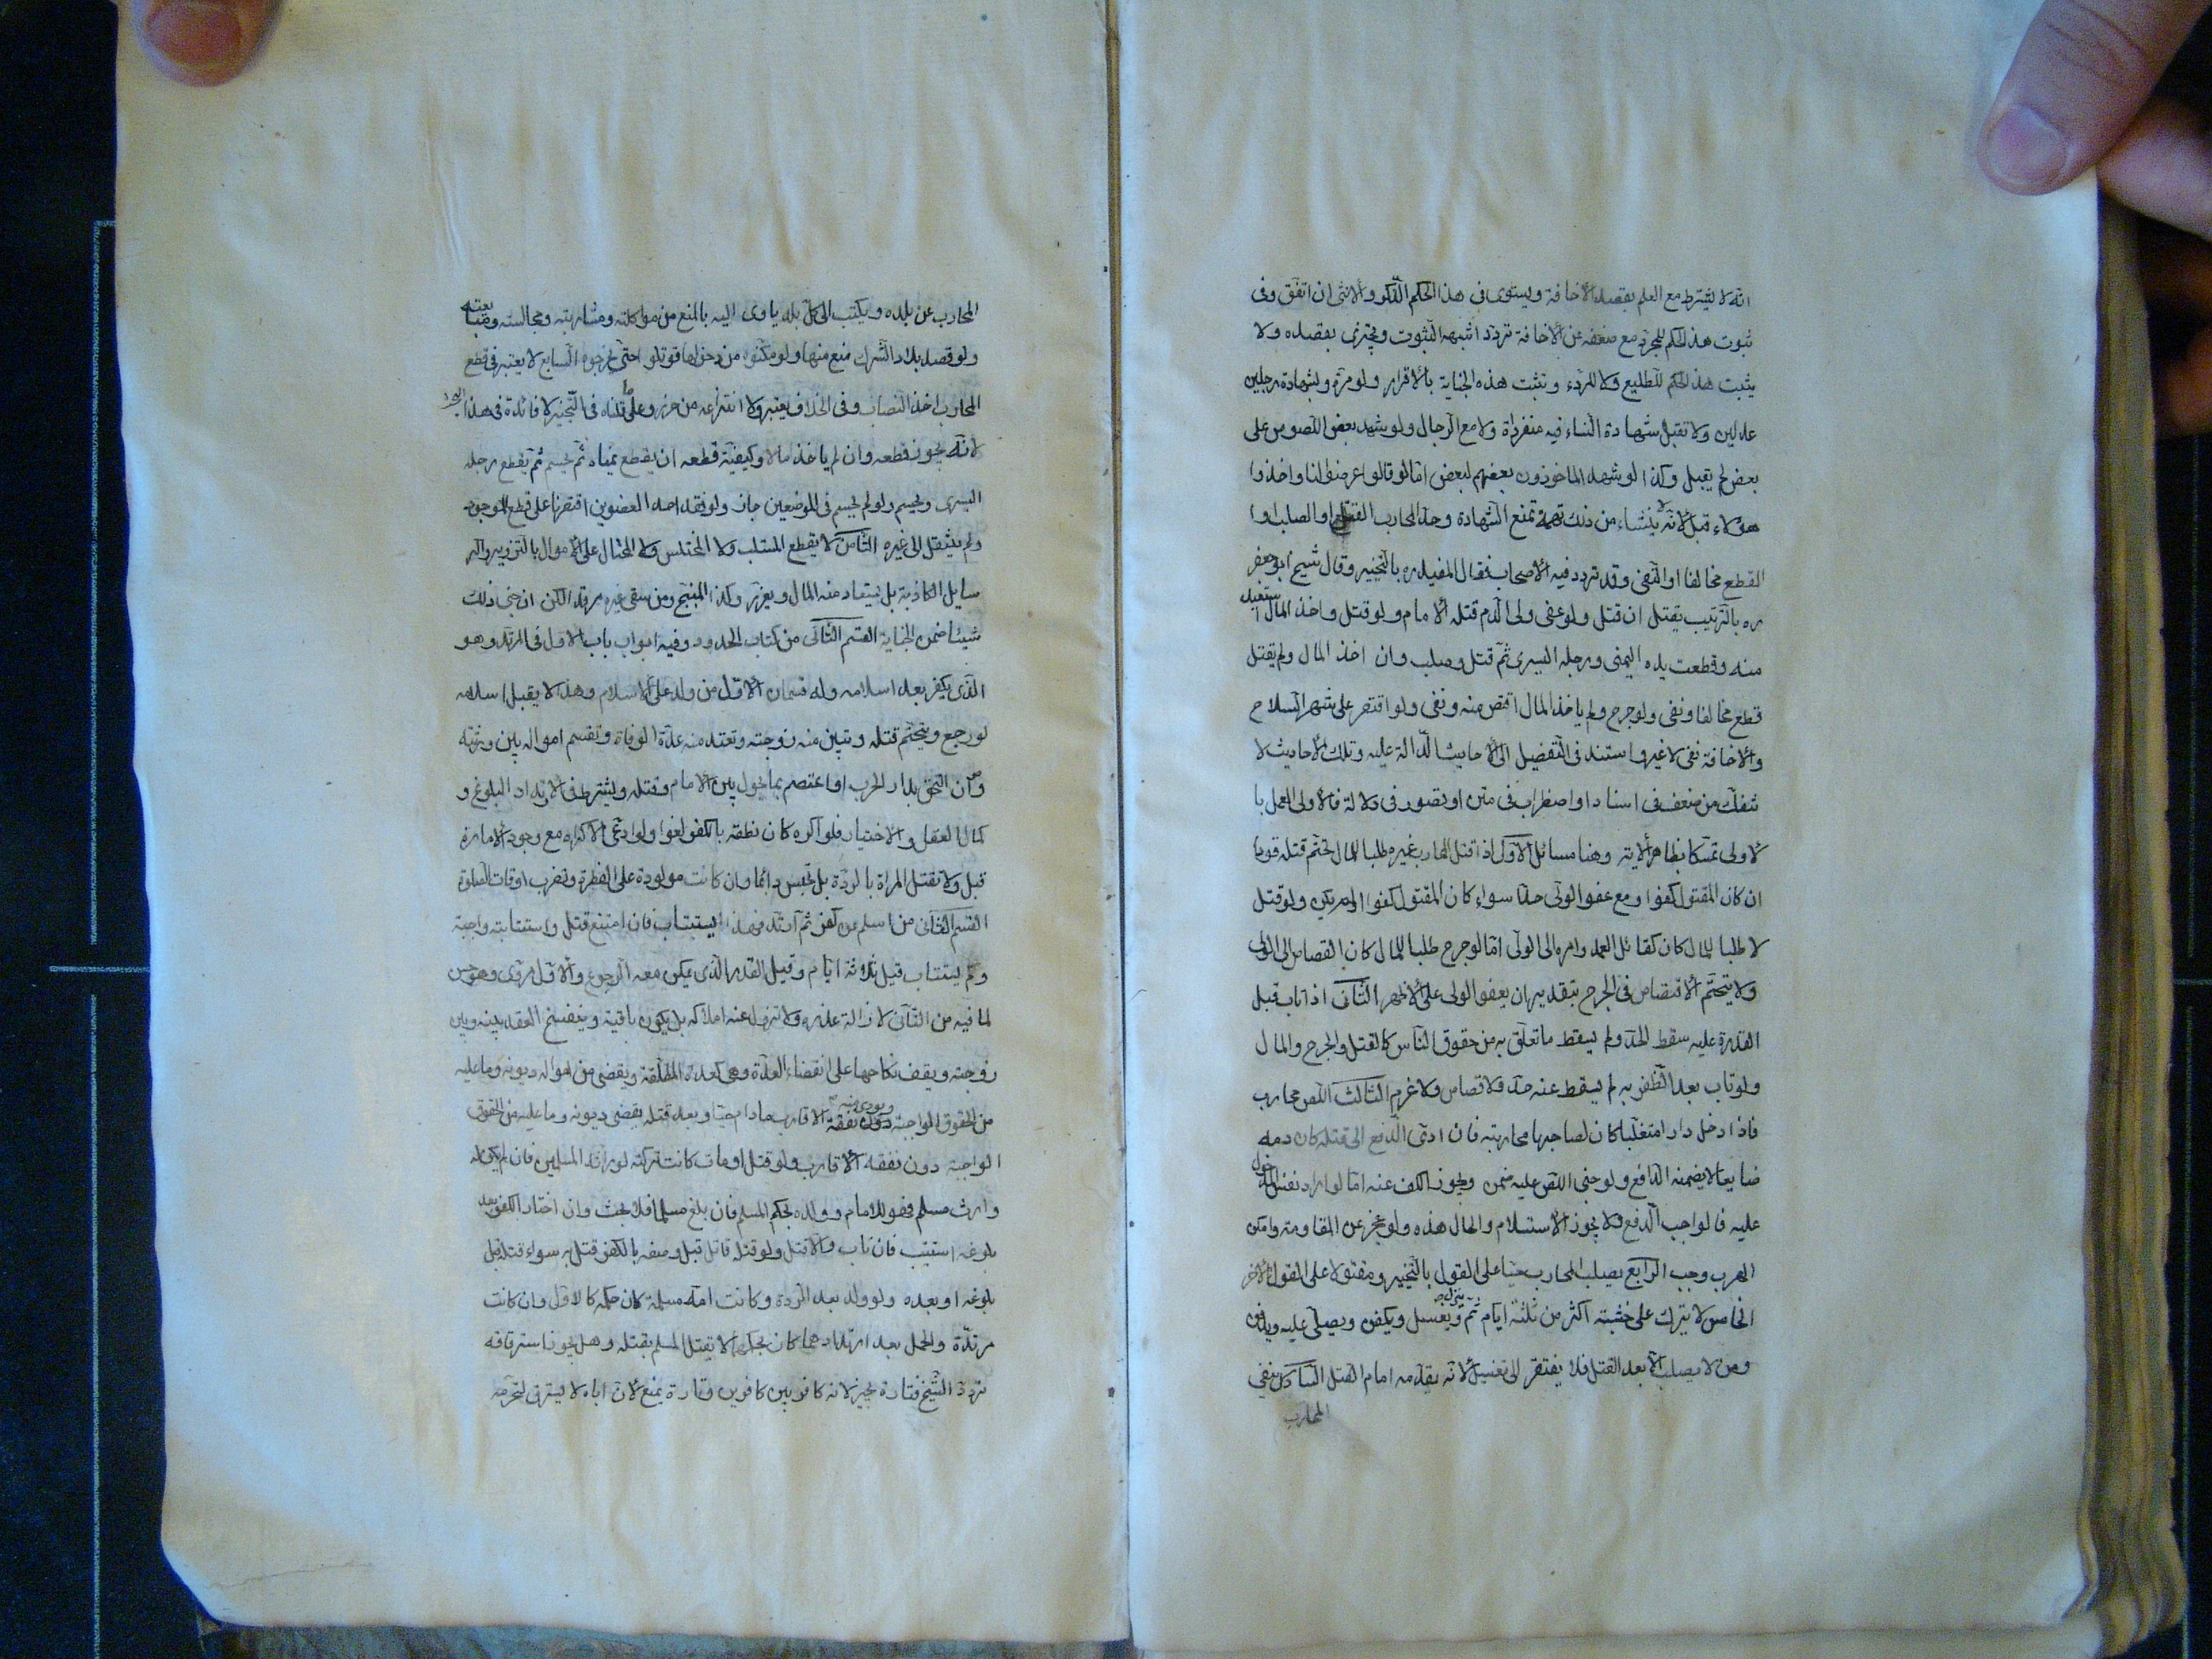 انه لا يشترط مع العلم بقصد الاخافة ويستوى فى هذا الحكم الذكر والانثى ان اتفق وفى
ثبوت هذا الحكم للمجرد مع ضعفه عن الاخافة تردد اشبهه الثبوت ويجتزى بقصده ولا
يثبت هذا الحكم للطليع ولا للردء وتثبت هذه الجناية بالاقرار ولو مرة وبشهادة رجلين
عدلين ولا تقبل شهادة النساء فيه منفردات ولا مع الرجال ولو شهد بعض اللصوص على
بعض لم يقبل وكذا لو شهد الماخوذون بعضهم لبعض اما لو قالوا عرضوا لنا واخذوا
هؤلاء قبل لانه لا ينشاء من ذلك تهمة تمنع الشهادة وحد المحارب القتل او الصلب او
القطع مخالفا او النفى وقد تردد فيه الاصحاب فقال المفيد ره بالتخيير وقال شيخ ابو جعفر
ره بالترتيب يقتل ان قتل ولو عفى ولى الدم قتله الامام ولو قتل واخذ المال استعيد
منه وقطعت يده اليمنى ورجله اليسرى ثم قتل وصلب وان اخذ المال ولم يقتل
قطع مخالفا ونفى ولو جرح ولم ياخذ المال اقتص منه ونفى ولو اقتصر على شهر السلاح
والاخافة نفى لا غير واستند فى التفصيل الى الاحاديث الدالة عليه وتلك الاحاديث لا
تنفك من ضعف فى اسناد او اضطراب فى متن او قصور فى دلالة فالاولى العمل با
لاولى تمسكا بظاهر الاية وهنا مسائل الاولى اذا قتل المحارب غيره طلبا للمال تحتم قتله قودا
ان كان المقتول كفوا ومع عفو الولى حدا سواء كان المقتول كفوا او لم يكن ولو قتل
لا طلبا للمال كان كقاتل العمد وامره الى الولى اما لو جرح طلبا للمال كان القصاص الى الولى
ولا يتحتم الاقتصاص فى الجرح بتقدير ان يعفو الولى على الاظهر الثانى اذا تاب قبل
القدرة عليه سقط الحد ولم يسقط ما تعلق به من حقوق الناس كالقتل والجرح والمال
ولو تاب بعد الظفر به لم يسقط عنه حد ولا قصاص ولا غرم الثالث اللص محارب
فاذا دخل دارا متغلبا كان لصاحبها محاربته فان ادى الدفع الى قتله كان دمه
ضايعا لا يضمنه الدافع ولو جنى اللص عليه ضمن ويجوز الكف عنه اما لو اراد نفس المدخول
عليه فالواجب الدفع ولا يجوز الاستسلام والحال هذه ولو عجز عن المقاومة وامكن
الهرب وجب الرابع يصلب المحارب حيا على القول بالتخيير ومقتولا على القول الاخر
الخامس لا يترك على خشبته اكثر من ثلثة ايام ثم ينزل ويغسل ويكفن ويصلى عليه ويدفن
ومن لا يصلب الا بعد القتل فلا يفتقر الى تغسيل لانه يقدمه امام القتل السادس ينفى
المحارب
المحارب عن بلده ويكتب الى كل بلد ياوى اليه بالمنع من مواكلته ومشاربته ومجالسته ومبايعته
ولو قصد بلاد الشرك منع منها ولو مكنوه من دخولها قوتلوا حتى يخرجوه السابع لا يعتبر فى قطع
المحارب اخذ النصاب وفى الخلاف يعتبر ولا انتزاعه من حرز وعلى ما قلناه فى التخيير لا فائدة فى هذا البحث
لانه يجوز قطعه وان لم ياخذ مالا وكيفية قطعه ان يقطع يمناه ثم يحسم ثم يقطع رجله
اليسرى ويحسم ولو لم يحسم فى الموضعين جاز ولو فقد احد العضوين اقتصرنا على قطع الموجود
ولم ينتقل الى غيره الثامن لا يقطع المستلب ولا المختلس ولا المحتال على الاموال بالتزوير والر
سايل الكاذبة بل يستعاد منه المال ويعزر وكذا المبنج ومن سقى غيره مرقدا لكن ان جنى ذلك
شيئا ضمن الجناية القسم الثانى من كتاب الحدود وفيه ابواب باب الاول فى المرتد وهو
الذى يكفر بعد اسلامه وله قسمان الاول من ولد على الاسلام وهذا لا يقبل اسلامه
لو رجع ويتحتم قتله وتبين منه زوجته وتعتد منه عدة الوفاة وتقسم امواله بين ورثته
وان التحق بدار الحرب او اعتصم بما يحول بين الامام وقتله ويشترط فى الارتداد البلوغ و
كمال العقل والاختيار فلو اكره كان نطقه بالكفر لغوا ولو ادعى الاكراه مع وجود الامارة
قبل ولا تقتل المراة بالردة بل تحبس دائما وان كانت مولودة على الفطرة وتضرب اوقات الصلوة
القسم الثانى من اسلم عن كفر ثم ارتد فهذا يستتاب فان امتنع قتل واستتابته واجبة
وكم يستتاب قيل ثلاثة ايام وقيل القدر الذى يمكن معه الرجوع والاول مروى وهو حسن
لما فيه من التانى لازالة عذره ولا تزول عنه املاكه بل يكون باقية وينفسخ العقد بينه وبين
زوجته ويقف نكاحها على انقضاء العدة وهى كعدة المطلقة ويقضى من امواله ديونه وما عليه
من الحقوق الواجبة ويؤدى منه نفقة الاقارب مادام حيا وبعد قتله يقضى ديونه وما عليه من الحقوق
الواجبة دون نفقة الاقارب ولو قتل او مات كانت تركته لورثته المسلمين فان لم يكن له
وارث مسلم فهو للامام وولده بحكم المسلم فان بلغ مسلما فلا بحث وان اختار الكفر بعد
بلوغه استتيب فان تاب والا قتل ولو قتله قاتل قبل وصفه بالكفر قتل به سواء قتله قبل
بلوغه او بعده ولو ولد بعد الردة وكانت امه مسلمة كان حكمه كالاول وان كانت
مرتدة والحمل بعد ارتدادهما كان بحكمهما لا يقتل المسلم بقتله وهل يجوز استرقاقه
تردد الشيخ فتارة يجيز لانه كافر بين كافرين وتارة يمنع لان اباه لا يسترق لتحرمه